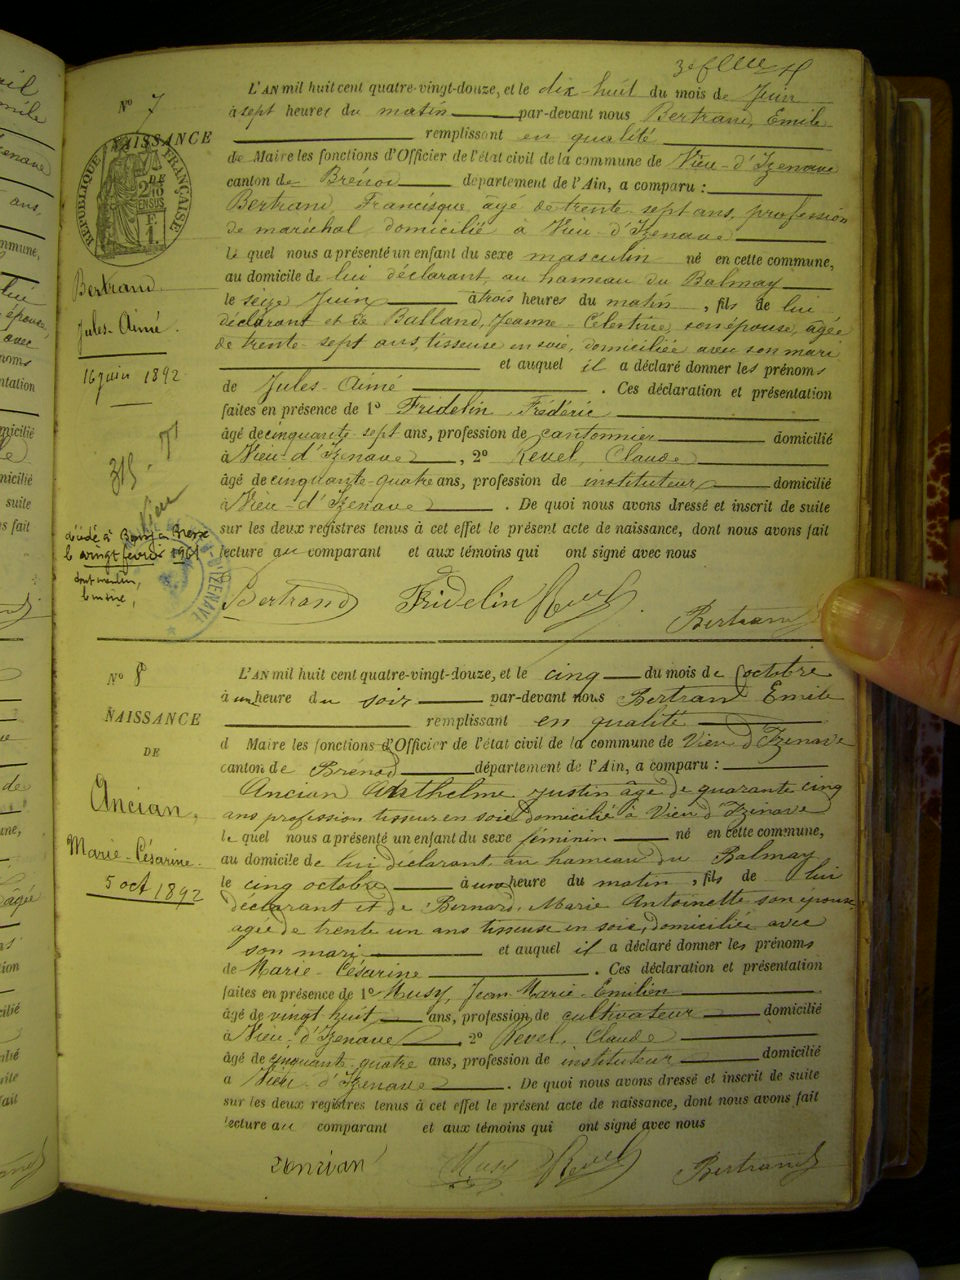 3e feuille
N° 7
NAISSANCE
DE
RÉPUBLIQUE FRANÇAISE
2 DES 10 EN SUS
F. 1.
Bertrand
Jules-Aimé.
16 juin 1892
315
Vieu
décédé à Bourg en Bresse
le vingt février 1961
dont mention,
le maire,
D'IZENAVE
L'AN mil huit cent quatre-vingt-douze, et le dix-huit du mois de Juin
à sept heures du matin par-devant nous Bertrand, Emile
remplissant en qualité
de Maire les fonctions d'Officier de l'état civil de la commune de Vieu-d'Izenave
canton de Brénod département de l'Ain, a comparu :
Bertrand, Francisque âgé de trente sept ans, profession
de maréchal domicilié à Vieu-d'Izenave
le quel nous a présenté un enfant du sexe masculin né en cette commune,
au domicile de lui déclarant au hameau du Balmay
le seize Juin à trois heures du matin, fils de lui
déclarant et de Balland, Jeanne-Célestine, son épouse, agée
de trente sept ans, tisseuse en soie, domiciliée avec son mari
et auquel il a déclaré donner les prénoms
de Jules-Aimé. Ces déclaration et présentation
faites en présence de 1° Fridelin, Frédéric
âgé de cinquante-sept ans, profession de cantonnier domicilié
à Vieu-d'Izenave, 2° Revel, Claude
âgé de cinquante-quatre ans, profession de instituteur domicilié
à Vieu-d'Izenave. De quoi nous avons dressé et inscrit de suite
sur les deux registres tenus à cet effet le présent acte de naissance, dont nous avons fait
lecture au comparant et aux témoins qui ont signé avec nous
Bertrand Fridelin Revel Bertrand
N° 8
NAISSANCE
DE
Ancian,
Marie-Césarine.
5 oct 1892
L'AN mil huit cent quatre-vingt-douze, et le cinq du mois de octobre
à une heure du soir par-devant nous Bertrand Emile
remplissant en qualité
d Maire les fonctions d'Officier de l'état civil de la commune de Vieu d'Izenave
canton de Brénod département de l'Ain, a comparu :
Ancian Anthelme justin âgé de quarante cinq
ans profession tisseur en soie domicilié à Vieu d'Izenave
le quel nous a présenté un enfant du sexe féminin né en cette commune,
au domicile de lui déclarant au hameau du Balmay
le cinq octobre à une heure du matin, fils de lui
déclarant et de Bernard, Marie Antoinette son épouse,
agée de trente un ans tisseuse en soie, domiciliée avec
son mari et auquel il a déclaré donner les prénoms
de Marie-Césarine. Ces déclaration et présentation
faites en présence de 1° Musy, Jean-Marie-Emilien
âgé de vingt huit ans, profession de cultivateur domicilié
à Vieu, d'Izenave, 2° Revel, Claude
âgé de cinquante-quatre ans, profession de instituteur domicilié
a Vieu-d'Izenave. De quoi nous avons dressé et inscrit de suite
sur les deux registres tenus à cet effet le présent acte de naissance, dont nous avons fait
lecture au comparant et aux témoins qui ont signé avec nous
Ancian Musy Revel Bertrand